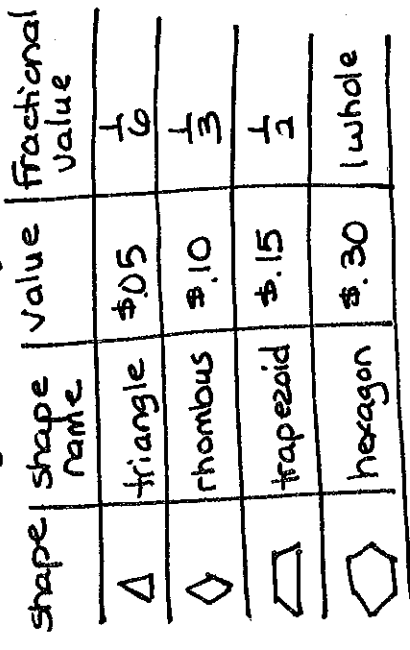 shape | shape name | value | fractional value
triangle | $.05 | 1/6
rhombus | $.10 | 1/3
trapezoid | $.15 | 1/2
hexagon | $.30 | 1 whole